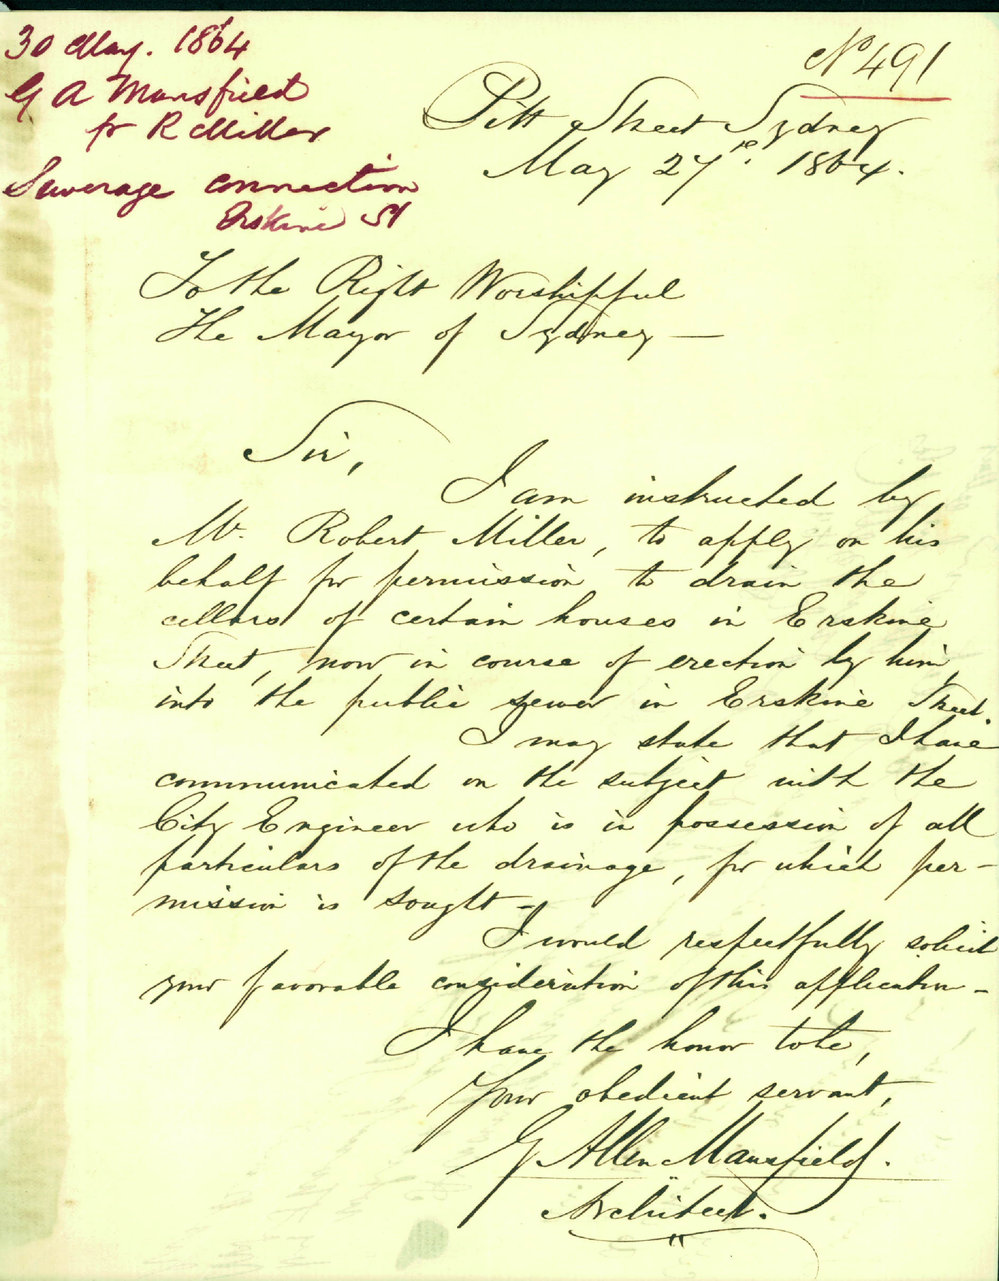 30 May. 1864
G A Mansfield
fr R Miller
Sewerage connection
Erskine St
No 491
Pitt Street Sydney
May 27th. 1864.
To the Right Worshipful
The Mayor of Sydney —
Sir,
I am instructed by
Mr. Robert Miller, to apply on his
behalf for permission to drain the
cellars of certain houses in Erskine
Street, now in course of erection by him
into the public sewer in Erskine Street.
I may state that I have
communicated on the subject with the
City Engineer who is in possession of all
particulars of the drainage, for which per-
mission is sought -
I would respectfully solicit
your favorable consideration of this application -
I have the honor to be,
Your obedient servant,
G Allen Mansfield.
Architect.